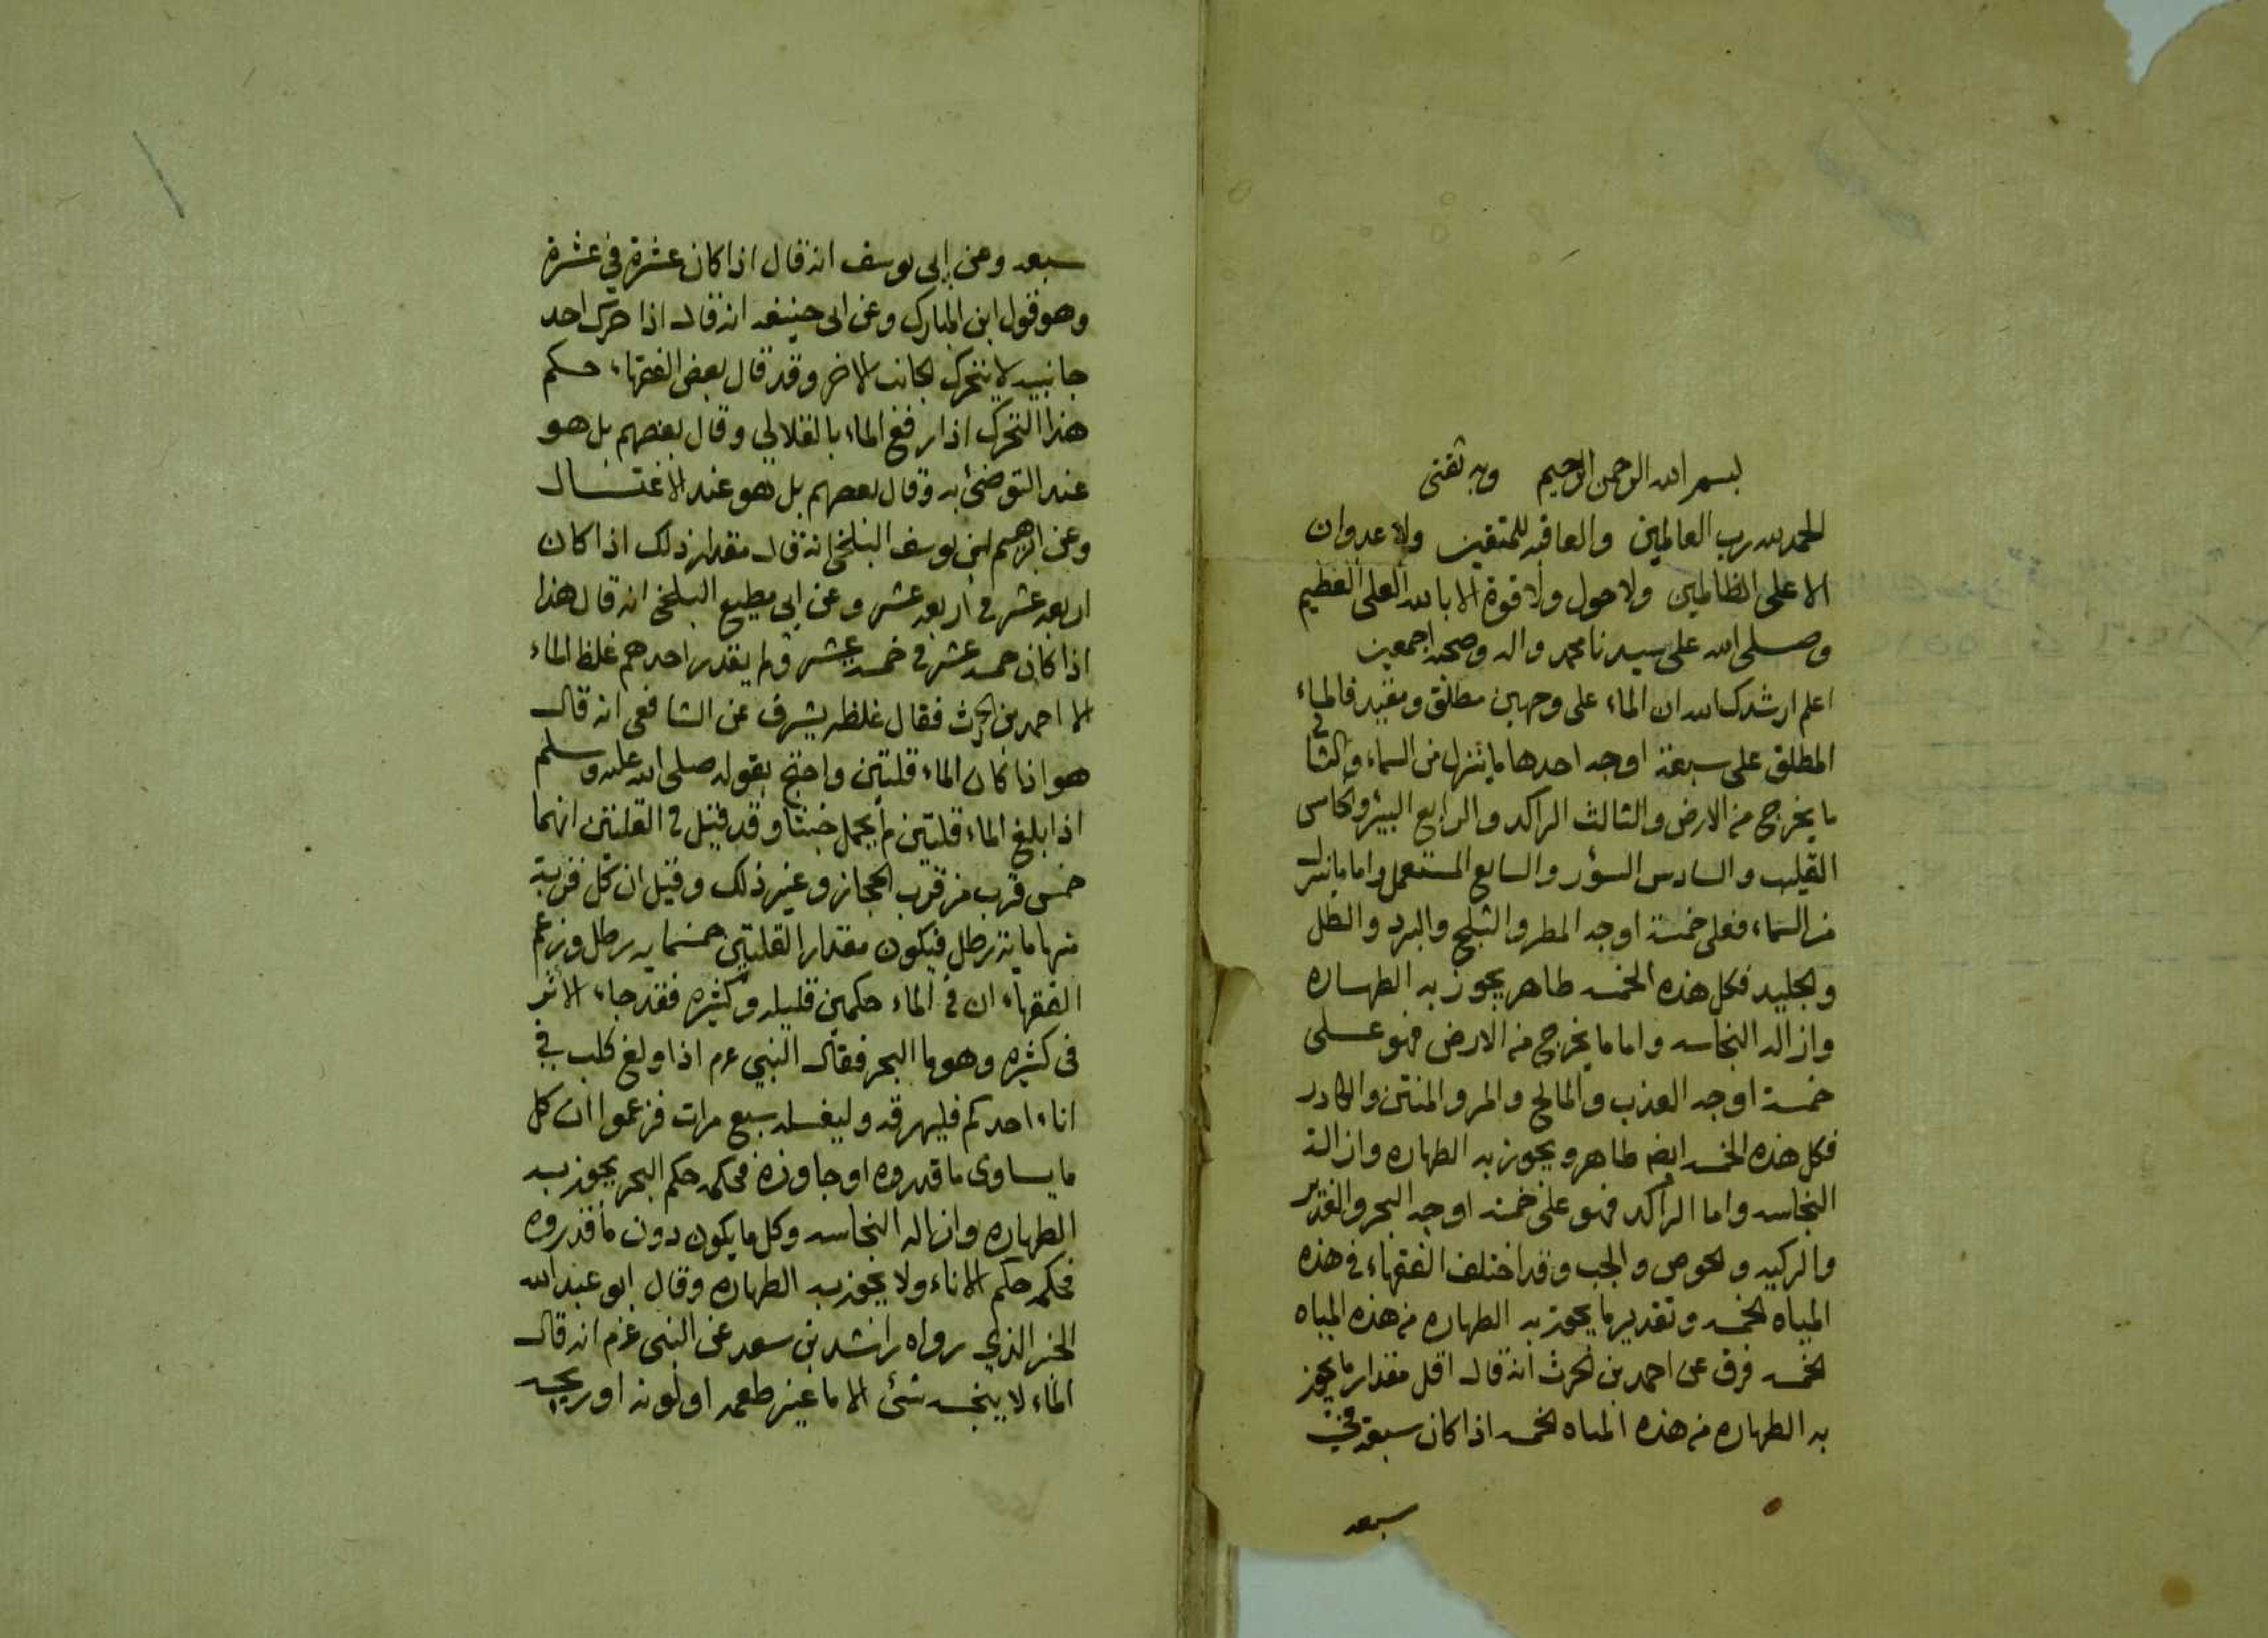 بسم الله الرحمن الرحيم وبه ثقتى
الحمد لله رب العالمين والعاقبه للمتقين ولا عدوان
الا على الظالمين ولا حول ولا قوة الا بالله العلى العظيم
وصلى الله على سيدنا محمد واله وصحبه اجمعين
اعلم ارشدك الله ان الماء على وجهين مطلق ومقيد فالماء
المطلق على سبعة اوجه احدها ما ينزل من السماء والثانى
ما يخرج من الارض والثالث الراكد والرابع البئر والخامس
القليب والسادس السؤر والسابع المستعمل واما ما ينزل
من السماء فعلى خمسة اوجه المطر والثلج والبرد والطل
والجليد فكل هذه الخمسه طاهر يجوز به الطهاره
وازاله النجاسه واما ما يخرج من الارض فهو على
خمسة اوجه العذب والمالح والمر والمنتن والكادر
فكل هذه الخمسه ايضا طاهر ويجوز به الطهاره وازالة
النجاسه واما الراكد فهو على خمسة اوجه البحر والغدير
والركيه والحوض والجب وقد اختلف الفقهاء في هذه
المياه الخمسه وتقدير ما يجوز به الطهاره من هذه المياه
الخمسه فرق عن احمد بن الحرث انه قال اقل مقدار ما يجوز
به الطهاره من هذه المياه الخمسه اذا كان سبعة في
سبعه
سبعه وعن ابى يوسف انه قال اذا كان عشرة في عشرة
وهو قول ابن المبارك وعن ابى حنيفه انه قال اذا حرك احد
جانبيه لا يتحرك الجانب الاخر وقد قال بعض الفقهاء حكم
هذا التحرك اذا رفع الماء بالقلالي وقال بعضهم بل هو
عند التوضئ به وقال بعضهم بل هو عند الاغتسال
وعن ابرهيم بن يوسف البلخى انه قال مقدار ذلك اذا كان
اربعه عشر فى اربعه عشر وعن ابى مطيع البلخى انه قال هذا
اذا كان خمسه عشر فى خمسه عشر ولم يقدر احدهم غلظ الماء
الا احمد بن الحرث فقال غلظه يشرف عن الشافعى انه قال
هو اذا كان الماء قلتين واحتج بقوله صلى الله عليه وسلم
اذا بلغ الماء قلتين لم يحمل خبثا وقد قيل فى القلتين انهما
خمس قرب من قرب الحجاز وغير ذلك وقيل ان كل قربة
منها ماية رطل فيكون مقدار القلتين خمسمايه رطل وزعم
الفقهاء ان فى الماء حكمين قليله وكثيره فقد جاء الاثر
فى كثيره وهو ما البحر فقال النبي عم اذا ولغ كلب في
اناء احدكم فليهرقه وليغسله سبع مرات فزعموا ان كل
ما يساوى ما قدروه او جاوزه فحكمه حكم البحر يجوز به
الطهاره وازاله النجاسه وكل ما يكون دون ما قدروه
فحكمه حكم الاناء ولا يجوز به الطهاره وقال ابو عبد الله
الخبر الذي رواه راشد بن سعد عن النبى عم انه قال
الماء لا ينجسه شئ الا ما غير طعمه او لونه او ريحه